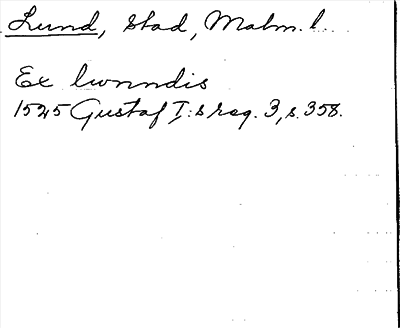 Lund, stad, Malm. l.
Ex lwnndis
1525 Gustaf I:s reg. 3, s. 358.